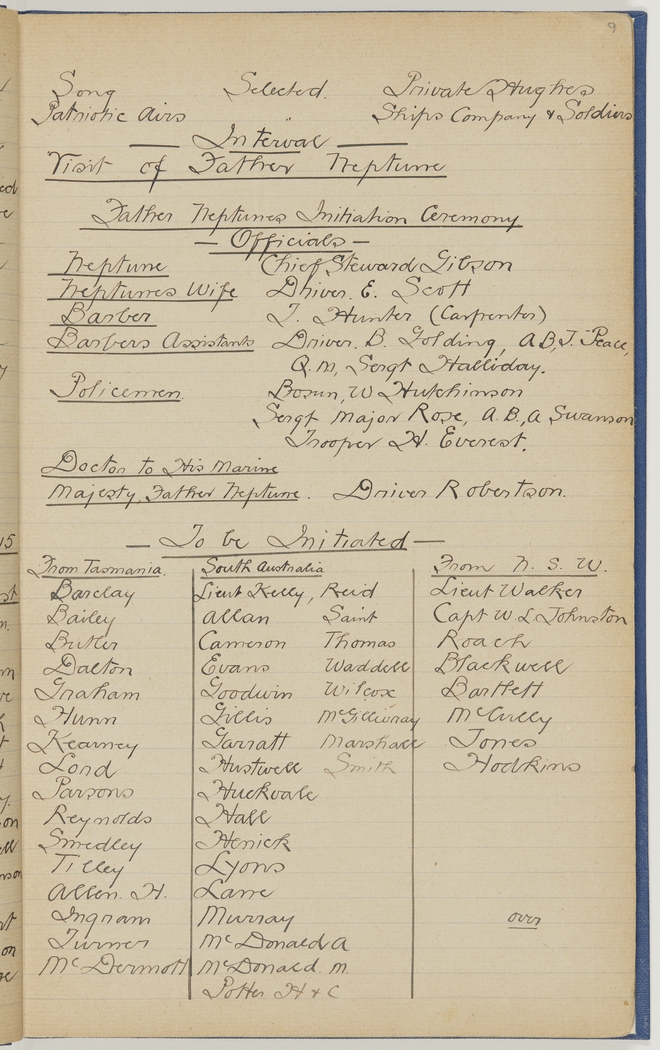 9
Song Selected. Private Hughes
Patriotic Airs " Ships Company & Soldiers
— Interval —
Visit of Father Neptune
Father Neptunes Initiation Ceremony
— Officials —
Neptune Chief Steward Gibson
Neptunes Wife Driver. E. Scott
Barber J. Hunter (Carpenter)
Barbers Assistants Driver. B. Golding, A.B, J. Peace,
Q.M, Sergt Halliday.
Policemen. Bosun, W Hutchinson
Sergt Major Rose, A.B, A Swanson
Trooper H. Everest.
Doctor to His Marine
Majesty, Father Neptune. Driver Robertson.
— To be Initiated —
From Tasmania. South Australia From N. S. W.
Barclay Lieut Kelly, Reid Lieut Walker
Bailey Allan Saint Capt W. L. Johnston
Butler Cameron Thomas Roach
Dalton Evans Waddell Blackwell
Graham Goodwin Wilcox Bartlett
Hunn Gillis McGillivray McCully
Kearney Garratt Marshall Jones
Lord Hustwell Smith Hodkins
Parsons Huckvale
Reynolds Hall
Smedley Henick
Tilley Lyons
Allen. H. Lane
Ingram Murray over
Turner McDonald A
McDermott McDonald. M.
Potter H & C